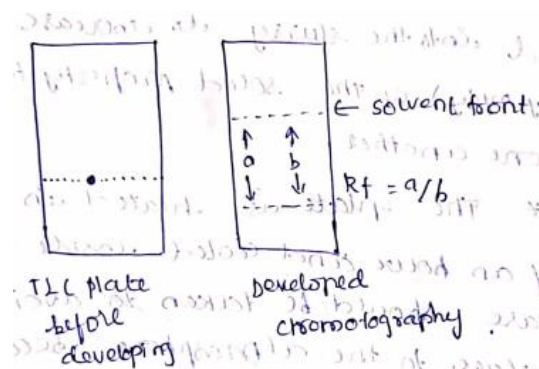 ← solvent front
a
b
Rf = a/b
TLC plate
before
developing
Developed
chromotography.